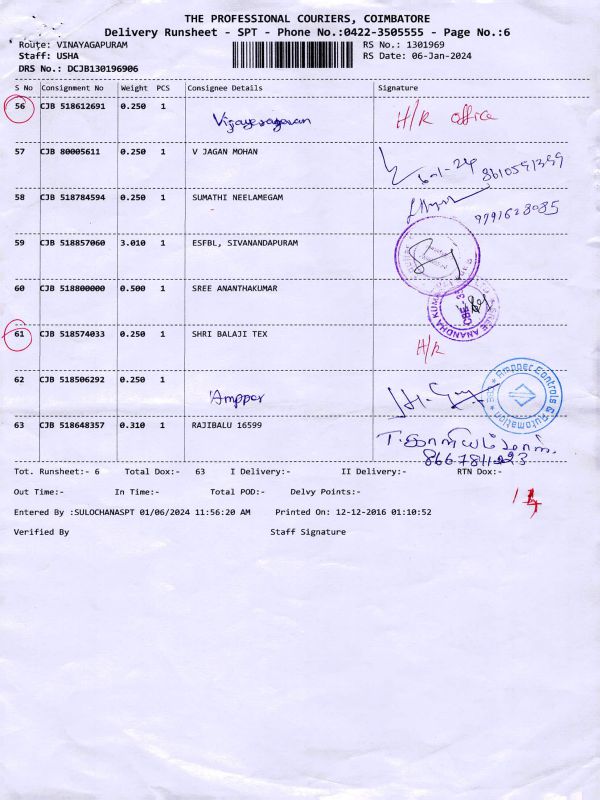 THE PROFESSIONAL COURIERS, COIMBATORE
Delivery Runsheet - SPT - Phone No.:0422-3505555 - Page No.:6
Route: VINAYAGAPURAM RS No.: 1301969
Staff: USHA RS Date: 06-Jan-2024
DRS No.: DCJB130196906
S No Consignment No Weight PCS Consignee Details Signature
56 CJB 518612691 0.250 1 H/R office
57 CJB 80005611 0.250 1 V JAGAN MOHAN 6-1-24 8610591399
58 CJB 518784594 0.250 1 SUMATHI NEELAMEGAM 9791628085
59 CJB 518857060 3.010 1 ESFBL, SIVANANDAPURAM
60 CJB 518800000 0.500 1 SREE ANANTHAKUMAR
61 CJB 518574033 0.250 1 SHRI BALAJI TEX H/R
62 CJB 518506292 0.250 1 Ampper Ampper Controls & Automation
63 CJB 518648357 0.310 1 RAJIBALU 16599
Tot. Runsheet:- 6 Total Dox:- 63 I Delivery:- II Delivery:- RTN Dox:-
Out Time:- In Time:- Total POD:- Delvy Points:-
Entered By :SULOCHANASPT 01/06/2024 11:56:20 AM Printed On: 12-12-2016 01:10:52
Verified By Staff Signature